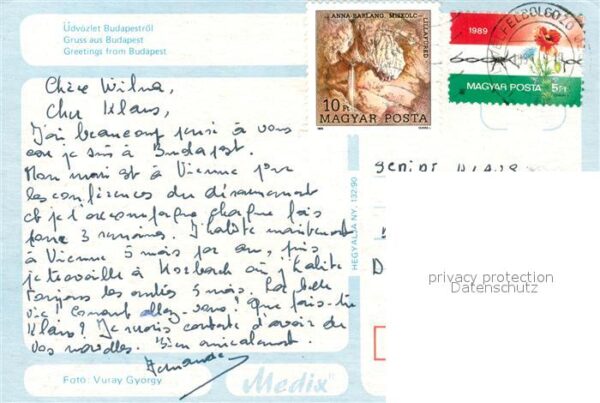 Üdvözlet Budapestről
Gruss aus Budapest
Greetings from Budapest
ANNA BARLANG. MISKOLC
LILLAFÜRED
10 Ft
MAGYAR POSTA
1989
MAGYAR POSTA 5Ft
Chère Wilna,
Cher Klaus,
J'ai beaucoup pensé à vous
car je suis à Budapest.
Mon mari est à Vienne pour
les conférences du désarmement
et je l'accompagne chaque fois
pour 3 semaines. J'habite maintenant
à Vienne 5 mois par an, puis
je travaille à où j'habite
toujours les autres mois. La belle
vie! Comment allez-vous? Que fais-tu
Klaus? Je serais contente d'avoir de
vos nouvelles. Bien amicalement.
HEGYALJA NY. 132/90
privacy protection
Datenschutz
Foto: Vuray György
Medix